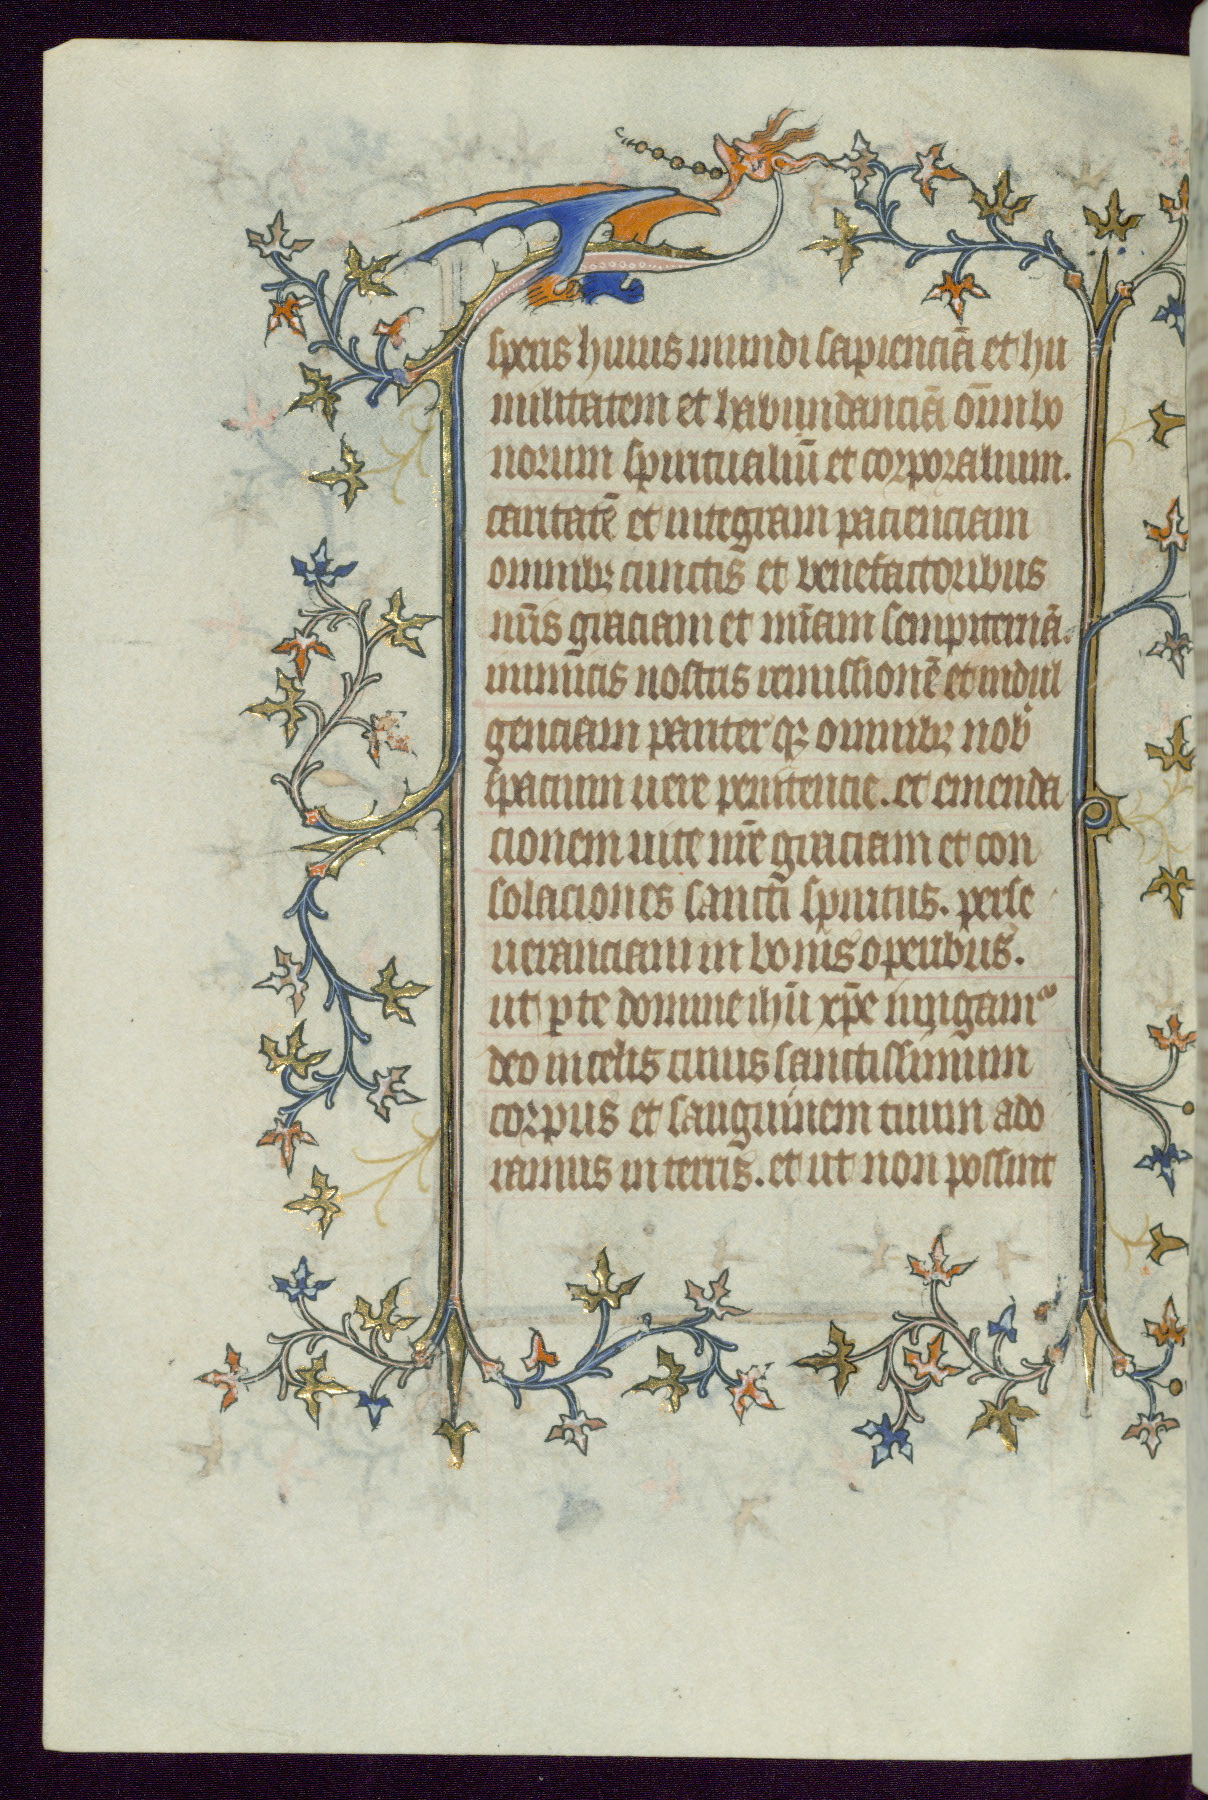 speris huius mundi sapienciā et hu
militatem et habundanciā om̄ bo
norum spiritualiū et corporalium.
caritatē et integram pacienciam
omnibꝫ cunctis et benefactoribus
nr̄is graciam et mīam sempiternā.
inimicis nostris remissionē et indul
genciam pariter qꝫ omnibꝫ nob̄
spacium uere penitencie. et emenda
cionem uite nr̄e graciam et con
solaciones sancti spiritus. perse
ueranciam in bonis operibus.
ut p te domine ihū xp̄e iungamꝰ
deo in celis cuius sanctissimum
corpus et sanguinem tuum ado
ramus in terris. et ut non possint